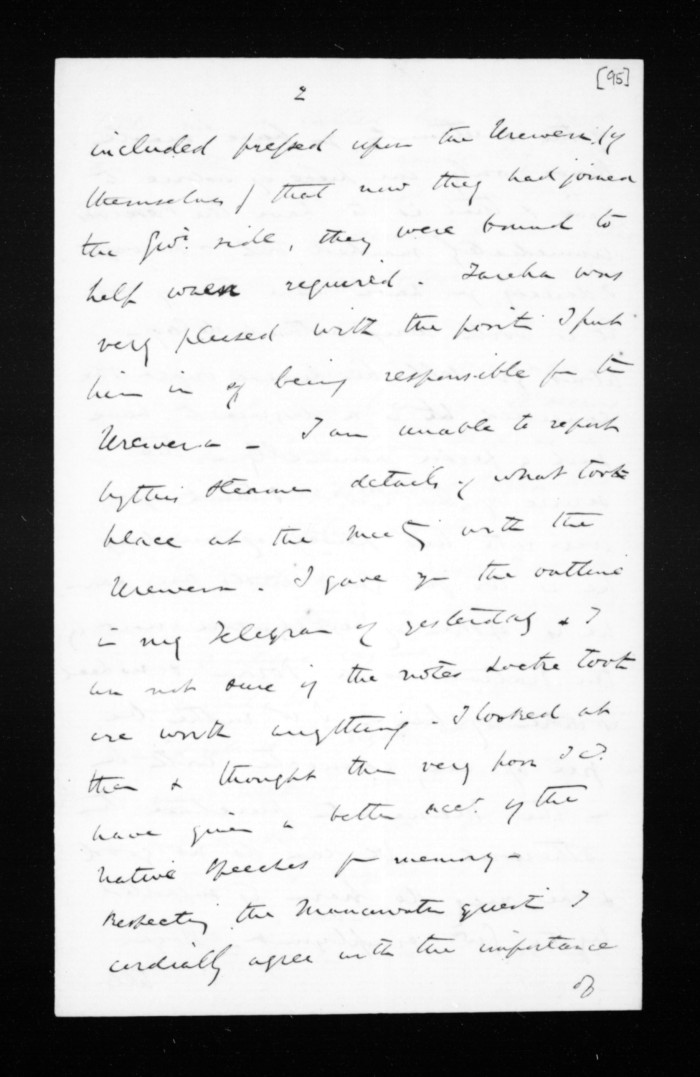 [95]
2
included pressed upon the Urewera (by
themselves) that now they had joined
the Govt. side, they were bound to
help when required. Tareha was
very pleased with the positn I put
him in of being responsible for the
Urewera – I am unable to report
by this steamer details of what took
place at the meetg with the
Urewera. I gave you the outline
in my Telegram of yesterday & I
am not sure if the notes Locke took
are worth anything. I looked at
them & thought them very poor I cd.
have given a better acct. of the
native speeches fm memory –
Respecting the Manawatu questn I
cordially agree with the importance
of